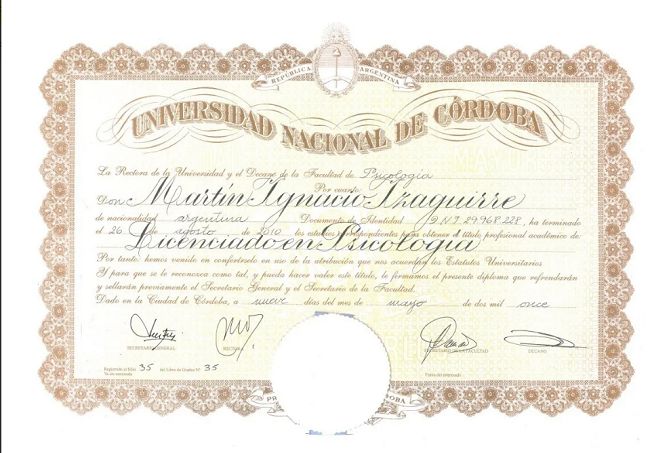 REPÚBLICA ARGENTINA
UNIVERSIDAD NACIONAL DE CÓRDOBA
La Rectora de la Universidad y el Decano de la Facultad de Psicología
Por cuanto
Don Martín Ignacio Izaguirre
de nacionalidad argentina Documento de Identidad DNI 29.968.228, ha terminado
el 26 de agosto de 2010 los estudios correspondientes para obtener el título profesional académico de
Licenciado en Psicología
Por tanto: hemos venido en conferírselo en uso de la atribución que nos acuerdan los Estatutos Universitarios
Y para que se le reconozca como tal, y pueda hacer valer este título, le firmamos el presente diploma que refrendarán
y sellarán previamente el Secretario General y el Secretario de la Facultad.
Dado en la Ciudad de Córdoba, a nueve días del mes de mayo de dos mil once
SECRETARIO GENERAL
RECTORA
SECRETARIO DE LA FACULTAD
DECANO
Registrado al folio 35 del Libro de Grados N° 35